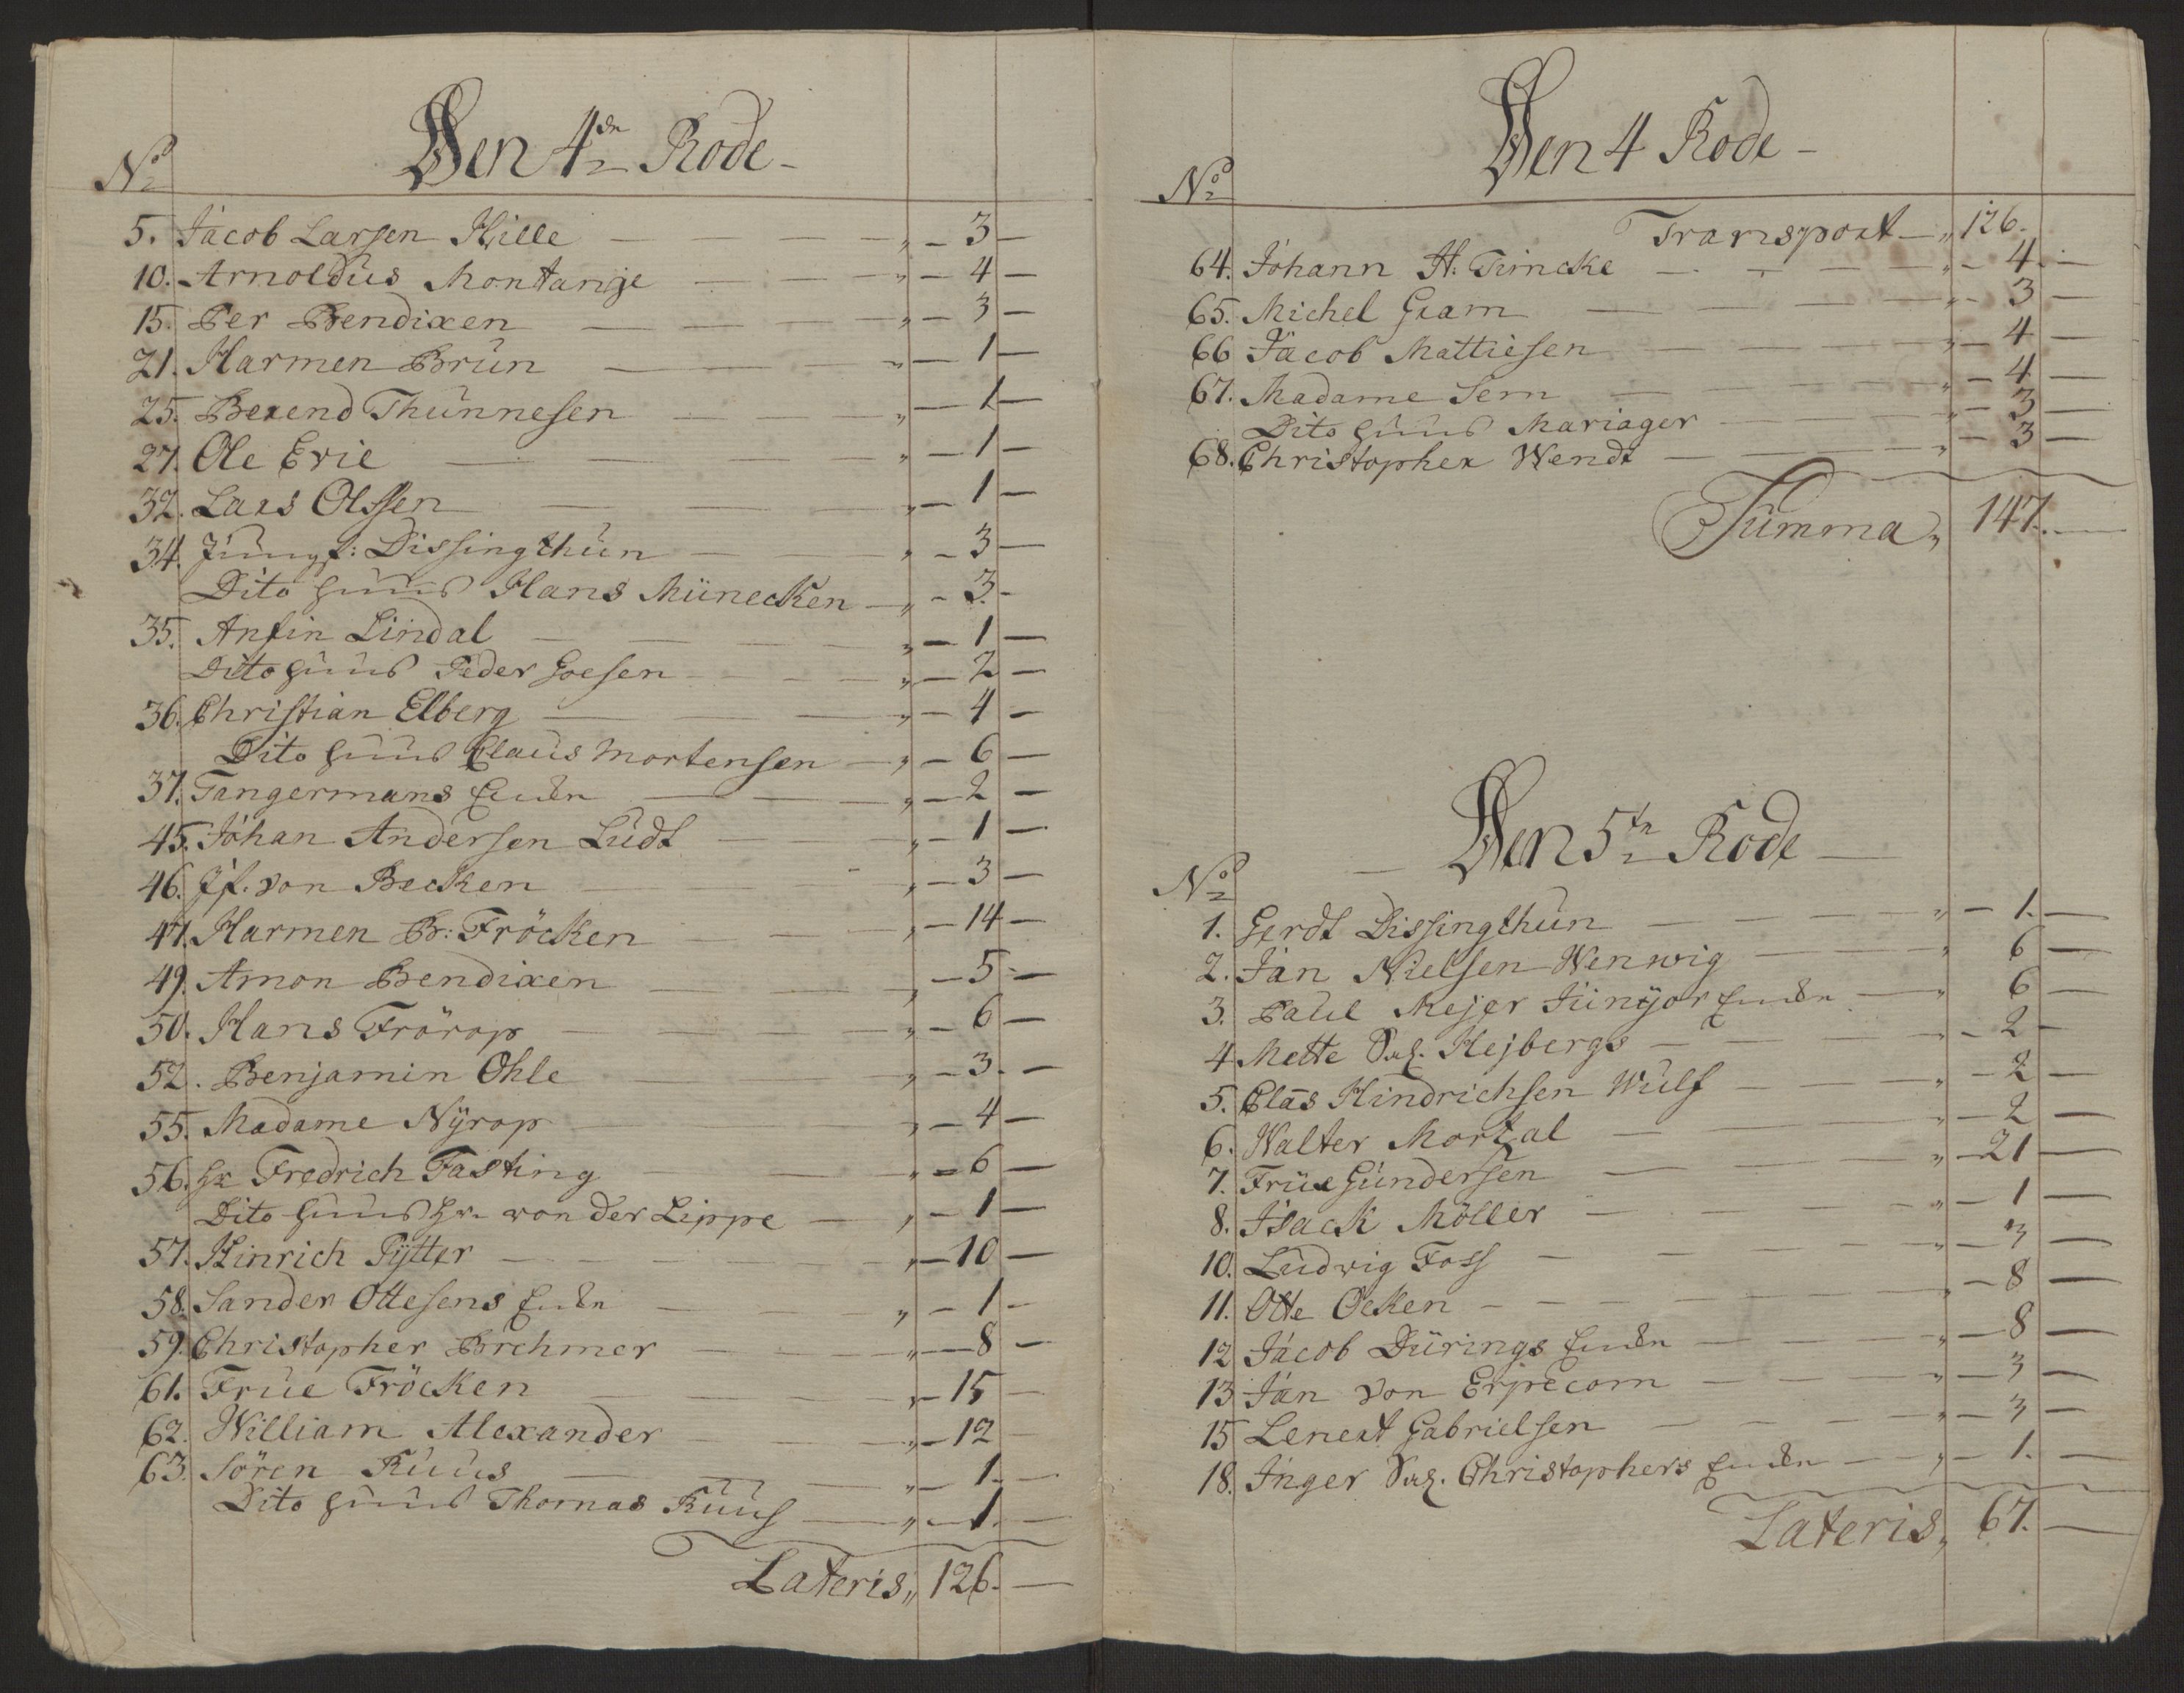 Den 4de Rode
No
5. Jacob Larsen Hille — 3 —
10. Arnoldus Montanje — 4 —
15. Per Bendixen — 3 —
21. Harmen Brun — 1 —
25. Berend Thunnesen — 1 —
27. Ole Evie — 1 —
32. Lars Olssen — 1 —
34. Jungf: Dissingthun — 3 —
Dito huus Hans Münecken — 3 —
35. Anfin Lindal — 1 —
Dito huus Peder Goesen — 2 —
36. Christian Elberg — 4 —
Dito huus Claus Mortensen — 6 —
37. Tangermans Encke — 2 —
45. Johan Andersen Ludt — 1 —
46. Jf. von Becken — 3 —
47. Harmen Br: Fröcken — 14 —
49. Amon Bendixen — 5 —
50. Hans Frörop — 6 —
52. Benjamin Ohle — 3 —
55. Madame Nÿrop — 4 —
56. Hr Fredrich Fasting — 6 —
Dito huus Hr. von der Lippe — 1 —
57. Hinrich Pÿtter — 10 —
58. Sander Ottesens Encke — 1 —
59. Christopher Brehmer — 8 —
61. Frue Fröcken — 15 —
62. William Alexander — 12
63. Sören Ruus — 1 —
Dito huus Thomas Ruus — 1 —
Lateris 126 —
Den 4 Rode
No
Transport 126.
64. Johann H: Timcke — 4 —
65. Michel Gram — 3 —
66 Jacob Mattiesen — 4 —
67. Madame Sem — 4 —
Dito huus Mariager — 3 —
68. Christopher Wendt — 3 —
Summa 147. —
Den 5te Rode
No
1. Gerdt Dissingthun — 1. —
2. Jan Nielsen Wenwig — 6 —
3. Paul Mejer Junÿor Encke — 6 —
4. Mette Sal. Hejbergs — 2 —
5. Clas Hindrichsen Wulf — 2 —
6. Walter Mortal — 2 —
7. Frue Gundersen — 21 —
8. Isack Möller — 1 —
10. Ludwig Foss — 3 —
11. Otte Ocken — 8 —
12 Jacob Dürings Encke — 8 —
13 Jan von Erpecom — 3 —
15 Lenert Gabrielsen — 3 —
18. Inger Sal. Christophers Encke — 1. —
Lateris 67. —